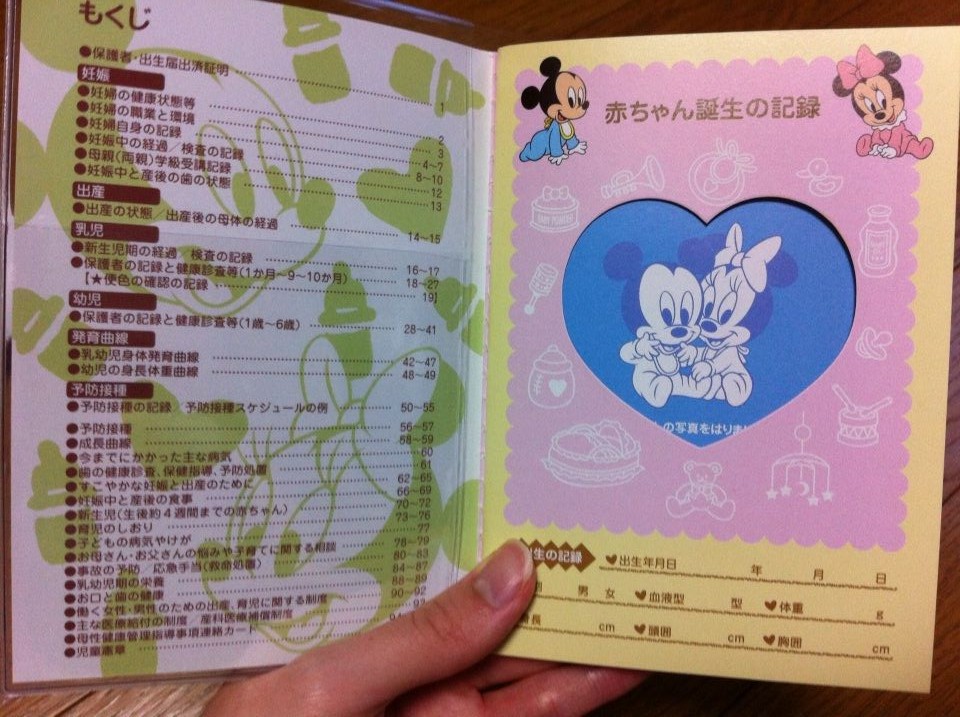 もくじ
●保護者・出生届出済証明 1
妊娠
●妊婦の健康状態等 2
●妊婦の職業と環境 3
●妊婦自身の記録 4~7
●妊娠中の経過/検査の記録 8~10
●母親(両親)学級受講記録 12
●妊娠中と産後の歯の状態 13
出産
●出産の状態/出産後の母体の経過 14~15
乳児
●新生児期の経過/検査の記録 16~17
●保護者の記録と健康診査等(1か月~9~10か月) 18~27
【★便色の確認の記録 19】
幼児
●保護者の記録と健康診査等(1歳~6歳) 28~41
発育曲線
●乳幼児身体発育曲線 42~47
●幼児の身長体重曲線 48~49
予防接種
●予防接種の記録/予防接種スケジュールの例 50~55
●予防接種 56~57
●成長曲線 58~59
●今までにかかった主な病気 60
●歯の健康診査、保健指導、予防処置 61
●すこやかな妊娠と出産のために 62~65
●妊娠中と産後の食事 66~69
●新生児(生後約4週間までの赤ちゃん) 70~72
●育児のしおり 73~76
●子どもの病気やけが 77
●お母さん・お父さんの悩みや子育てに関する相談 78~79
●事故の予防/応急手当(救命処置) 80~83
●乳幼児期の栄養 84~87
●お口と歯の健康 88~89
●働く女性・男性のための出産、育児に関する制度 90~92
●主な医療給付の制度/産科医療補償制度
●母性健康管理指導事項連絡カード
●児童憲章
赤ちゃん誕生の記録
BABY POWDER
の写真をはりま
生の記録 ♥出生年月日 年 月 日
男 女 ♥血液型 型 ♥体重 g
長 cm ♥頭囲 cm ♥胸囲 cm